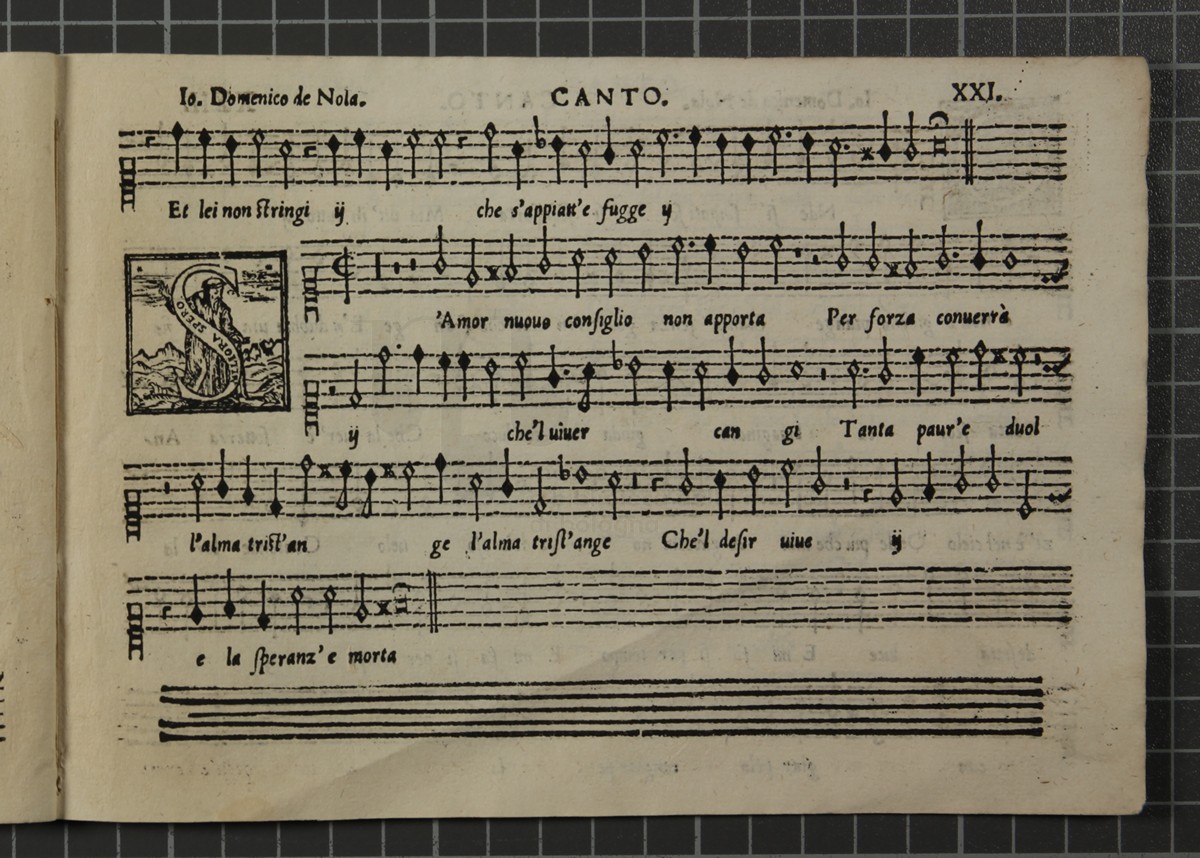 Io. Domenico de Nola. CANTO. XXI.
Et lei non stringi ij che s'appiatt'e fugge ij
S
SPERO
MELIORA
'Amor nuouo consiglio non apporta Per forza conuerrà
ij che'l uiuer can gi Tanta paur'e duol
l'alma trist'an ge l'alma trist'ange Che'l desir uiue ij
e la speranz'e morta